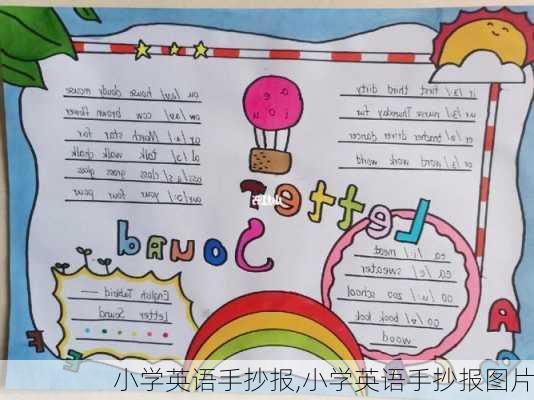 ir /ɜː/ first third dirty
ur /ɜː/ nurse Thursday fur
er /ə/ teacher driver dancer
or /ɜː/ word work world
a e
i o u
ou /aʊ/ house cloudy mouse
ow /aʊ/ cow brown flower
ar /ɑː/ March star far
al /ɔː/ talk walk chalk
ass /ɑːs/ class grass glass
our /ɔː/ your four pour
Letter
Sound
ea /iː/ meat
ea /e/ sweater
oo /uː/ zoo school
oo /ʊ/ book look
wood
English Tabloid —
letter Sound
A
R
F
F
小学英语手抄报,小学英语手抄报图片